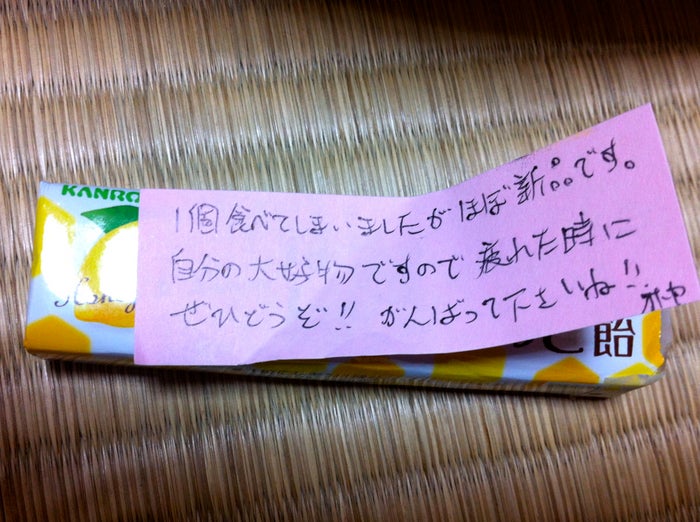 KANRO
1個食べてしまいましたがほぼ新品です。
自分の大好物ですので疲れた時に
ぜひどうぞ!! がんばって下さいね!!
Honey
飴